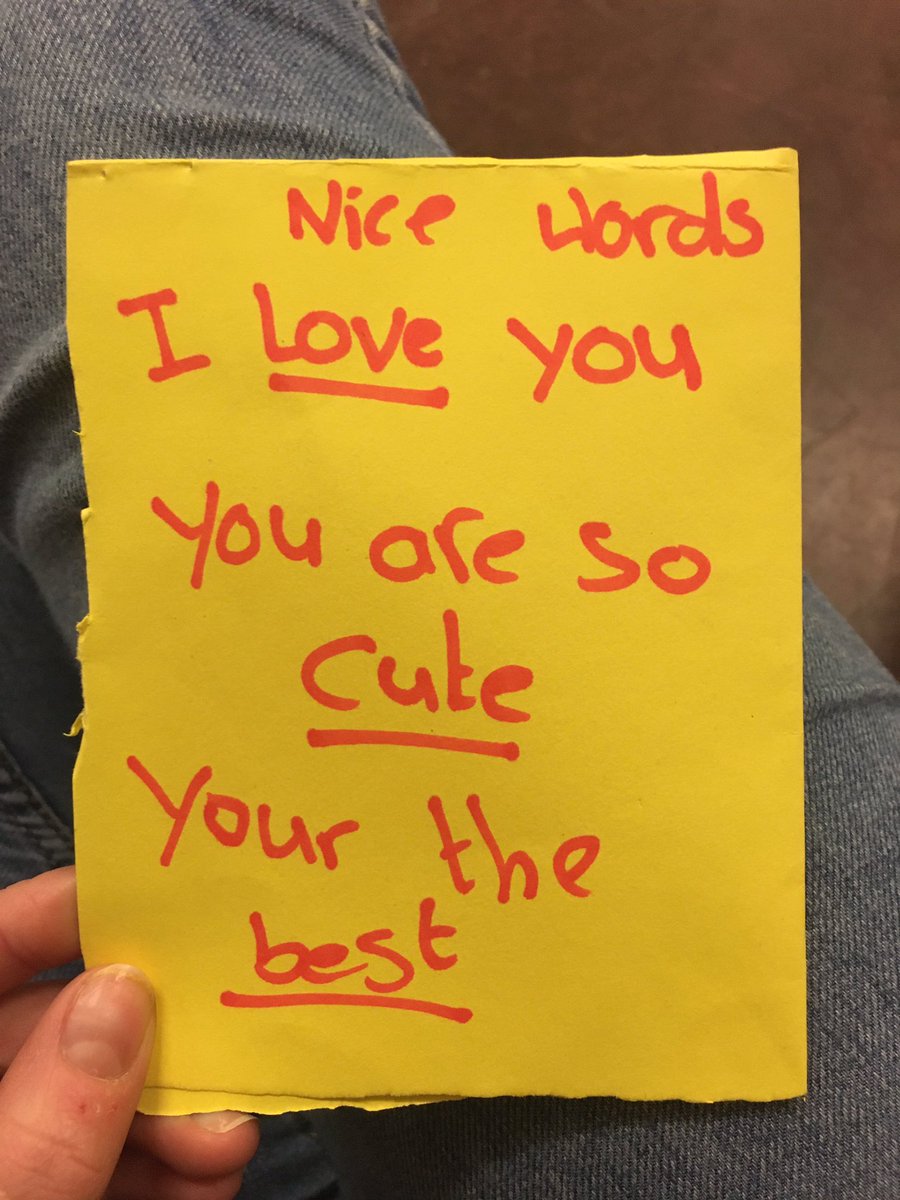 Nice Words
I Love you
You are so
Cute
Your the
best